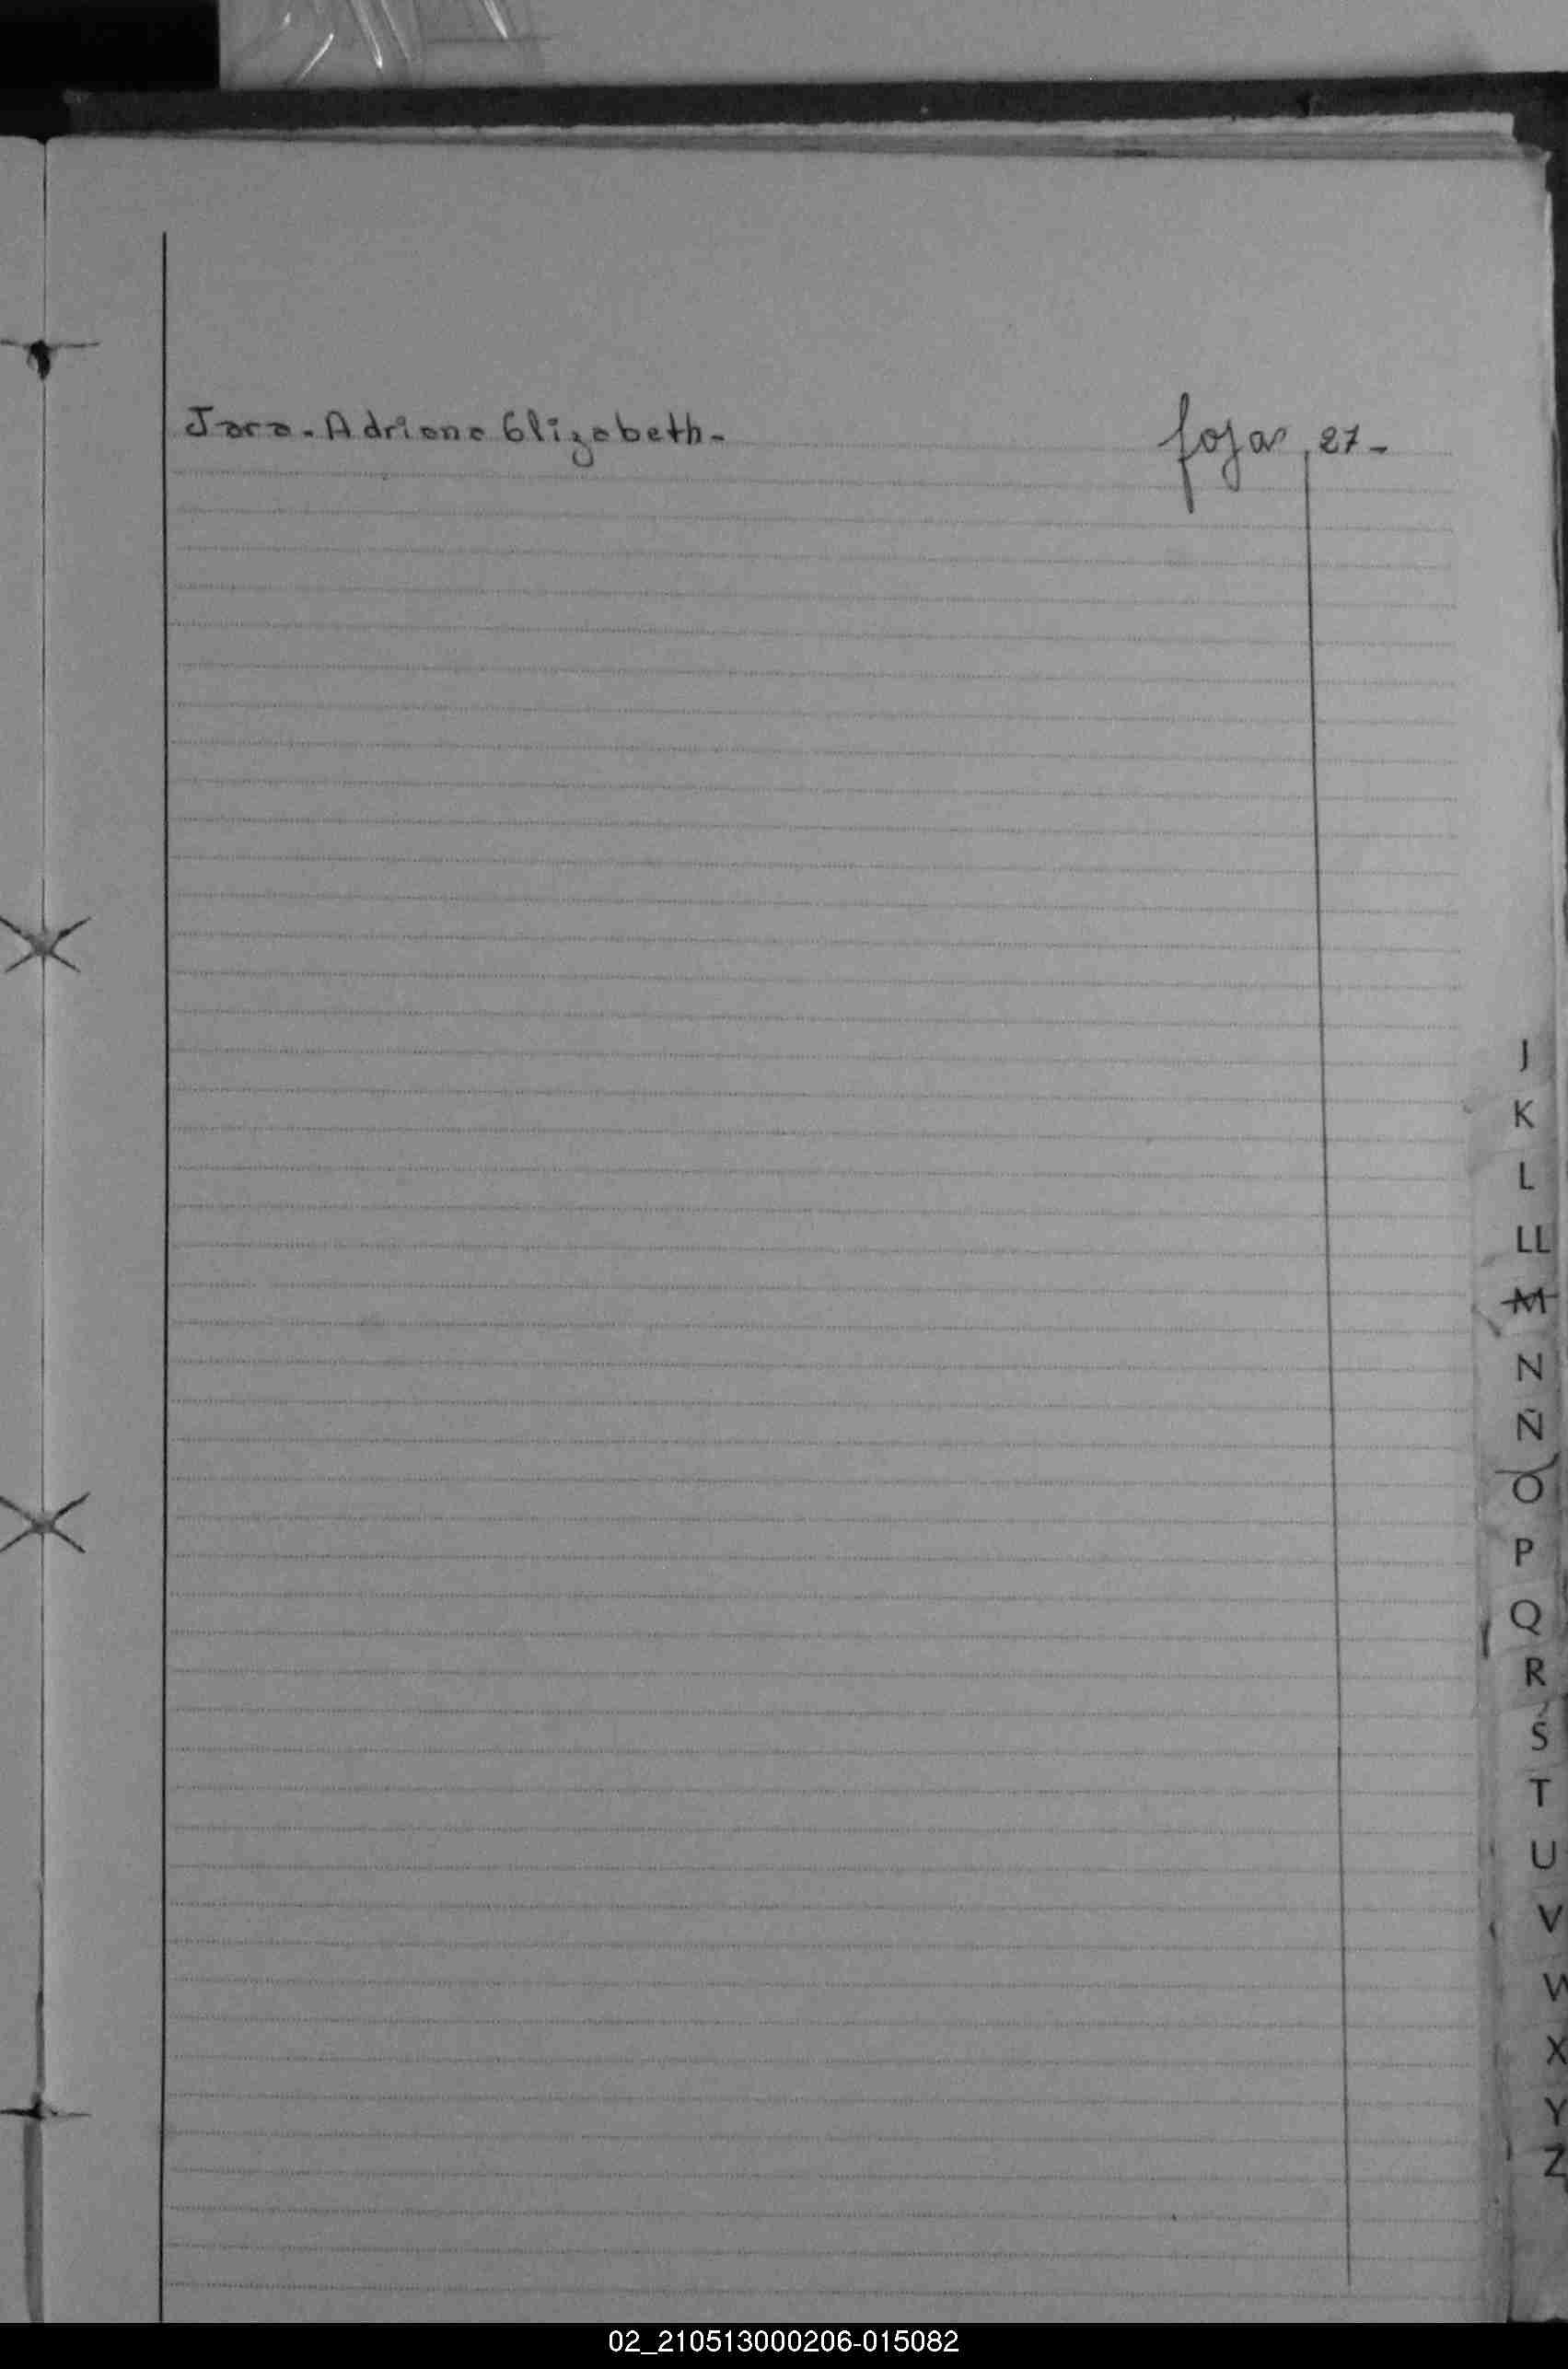 Jara - Adriana Elizabeth - fojas 27 -
J
K
L
LL
M
N
Ñ
O
P
Q
R
S
T
U
V
W
X
Y
Z
02_210513000206-015082